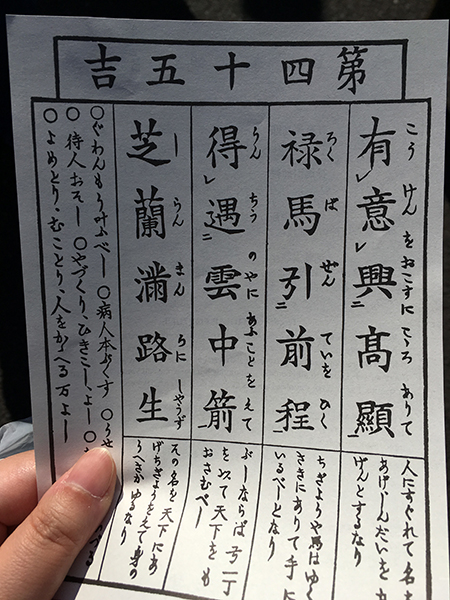 第四十五吉
有意興髙顯
こうけんをおこすにこゝろありて
人にすぐれて名を
げんとするなり
禄馬引前程
ろくばぜんていをひく
ちぎようや馬はゆく
さきにありて手に
いるべしとなり
得遇雲中箭
うんちうのやにあふことをえて
ぶしならば弓一丁
を以て天下をも
おさむべし
芝蘭滿路生
しらんまんろにしやうず
その名を天下にあ
げちぎようをえて身の
うへさかゆるなり
○ぐわんもう叶ふべし ○病人本ぶくす ○うせ
○待人おそし ○やづくり、ひきこし、よし ○
○よめとり、むことり、人をかゝへる万よし